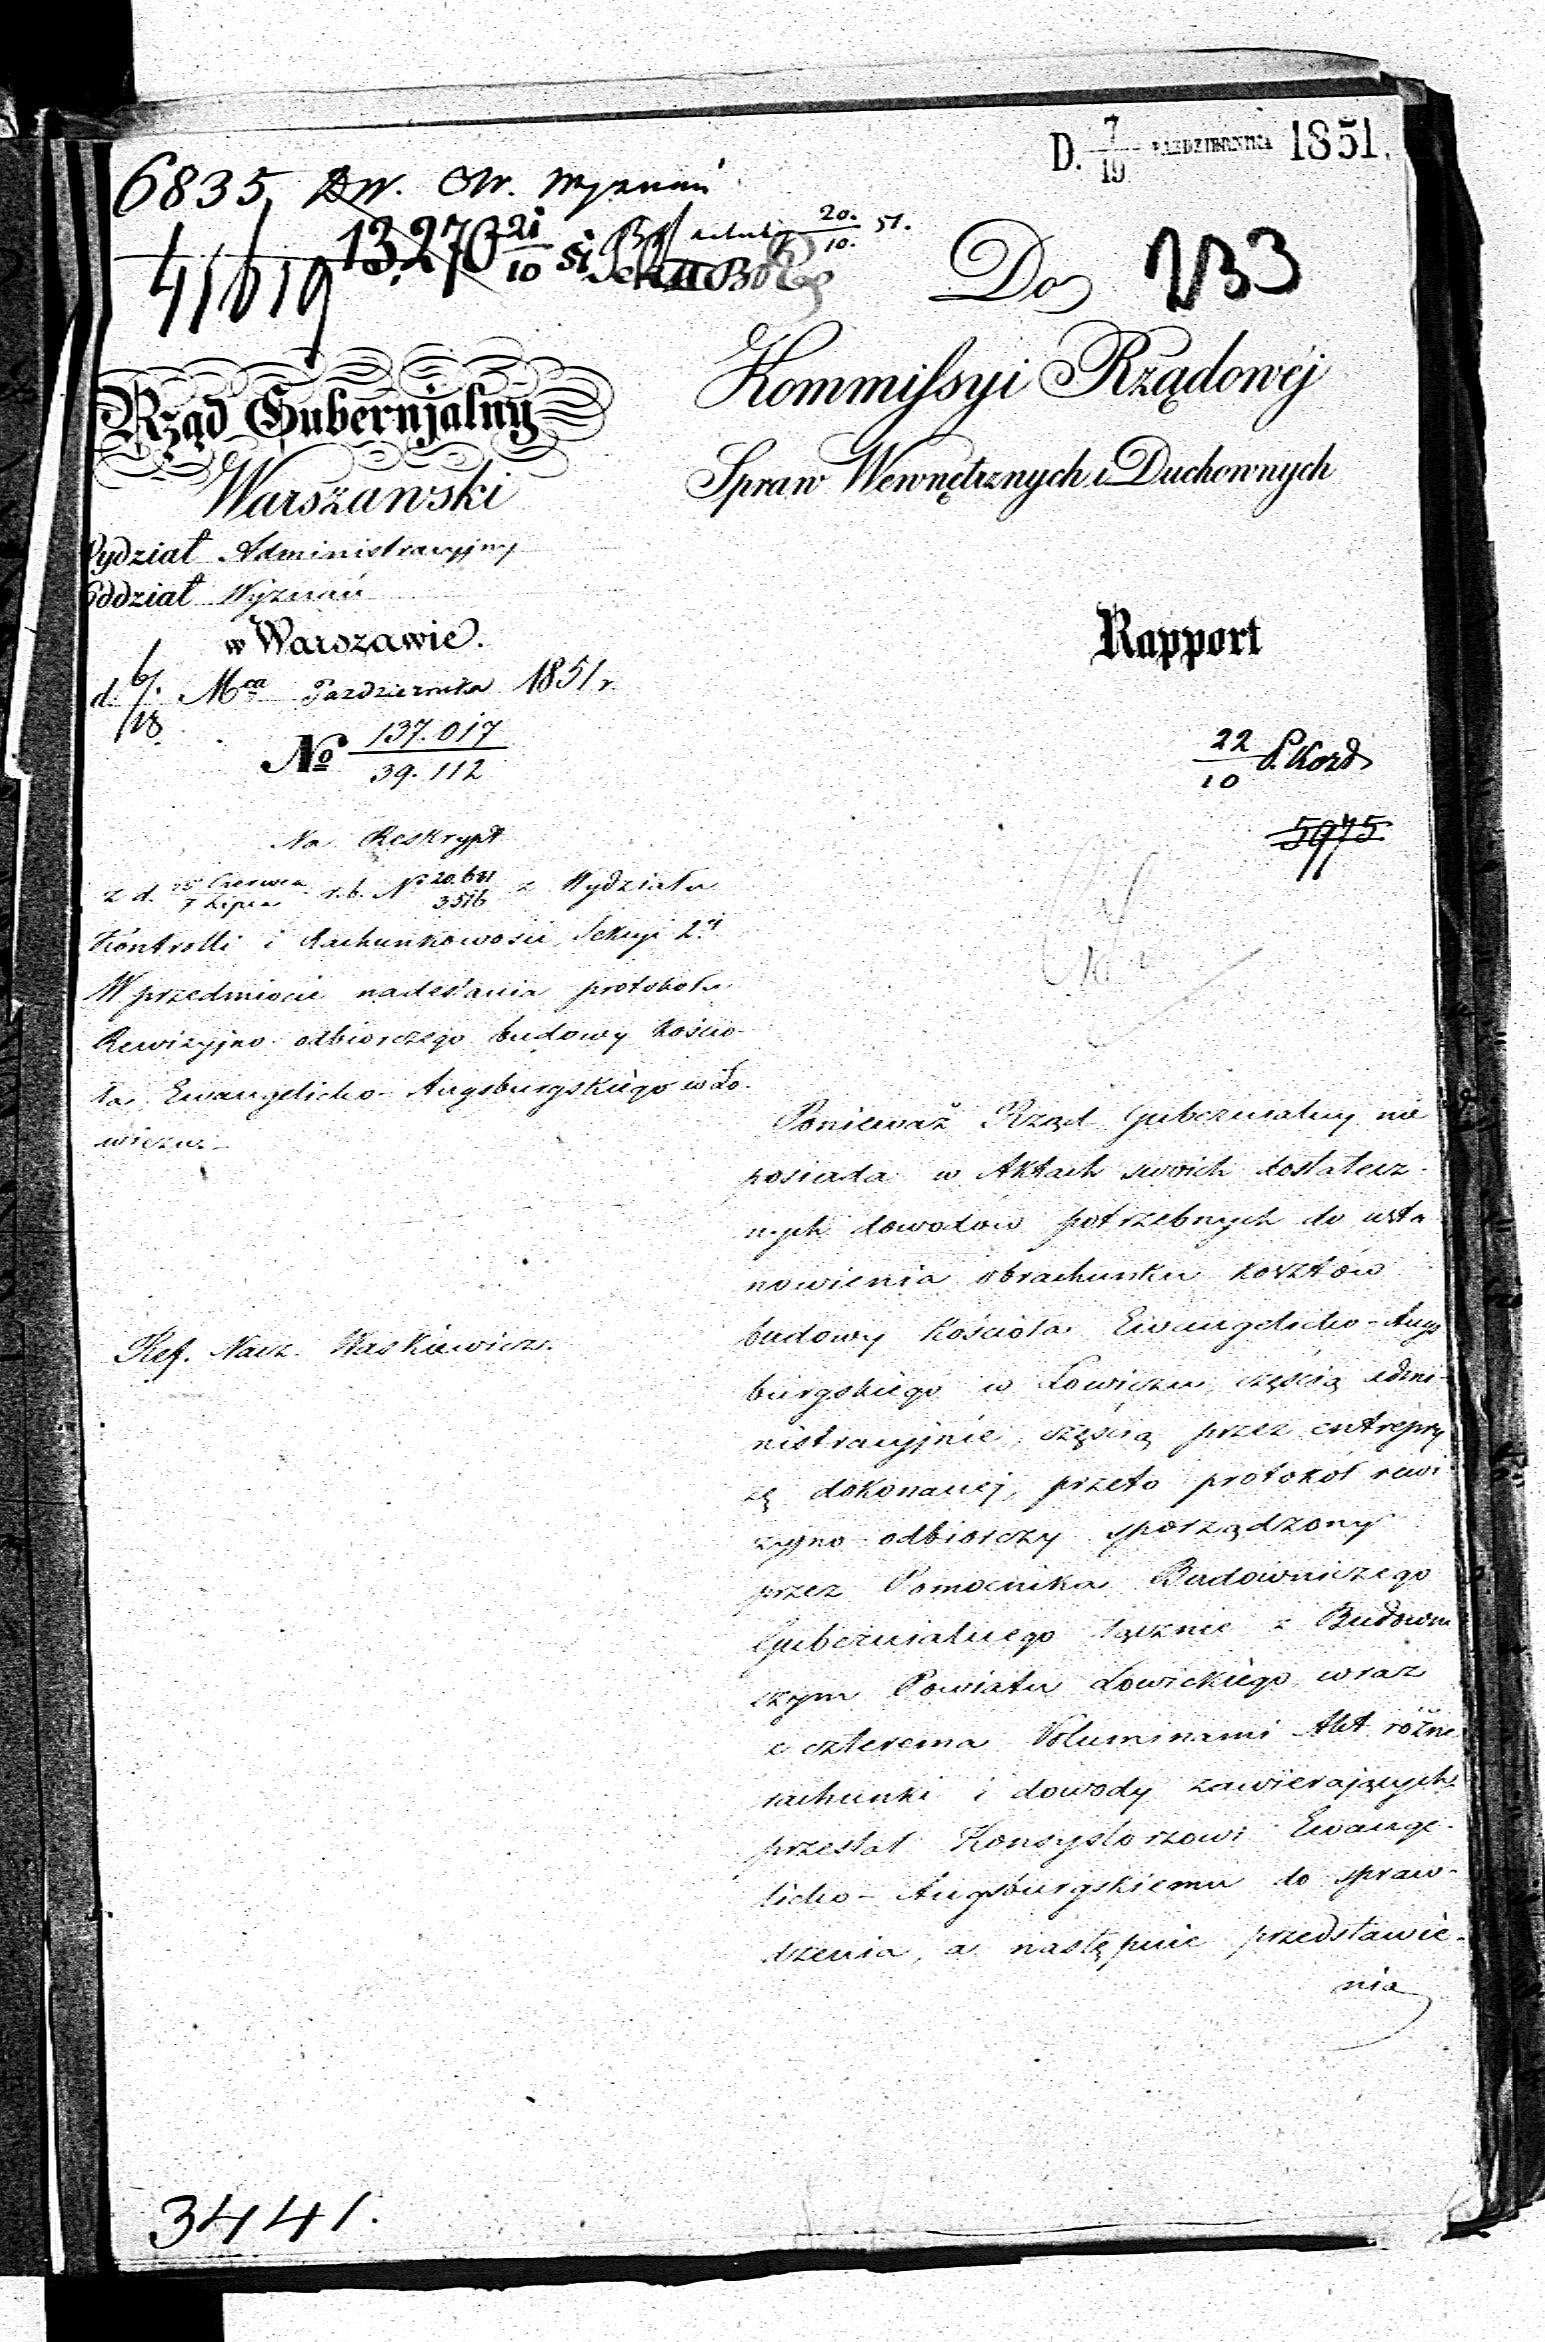 D. 7/19 PAZDZIERNIKA 1851.
6835 Dw. Ow. Wyznań
13,270 21/10 51
20./10. 51.
41619
Do 233
Kommissyi Rządowéj
Spraw Wewnętrznych i Duchownych
Rząd Gubernjalny
Warszawski
Wydział Administracyjny
Oddział Wyznań
w Warszawie.
d. 6/18. Mca Pazdziernika 1851 r.
No 137.017/39.112
Rapport
22/10
5975
Na Reskrypt
z d. 25 Czerwca/7 Lipca r. b. No z Wydziału
Kontrolli i Rachunkowości Sekcyi 2éj
W przedmiocie nadesłania protokołu
Rewizyjno odbiorczego budowy Kościo-
ła Ewangelicko-Augsburgskiego w Ło-
wiczu
Ref. Nacz. Waskiewicz.
Ponieważ Rząd Gubernialny nie
posiada w Aktach swoich dostatecz-
nych dowodów potrzebnych do usta-
nowienia obrachunku kosztów
budowy Kościoła Ewangelicko-Augs
burgskiego w Łowiczu, częścią admi-
nistracyjnie, częścią przez entrepry
zę dokonanej, przeto protokół rewi-
zyjno-odbiorczy sporządzony
przez Pomocnika Budowniczego
Gubernialnego łącznie z Budowni
czym Powiatu Łowickiego wraz
z czterema Voluminami Akt różne
rachunki i dowody zawierających
przesłał Konsystorzowi Ewange-
licko-Augsburgskiemu do spraw-
dzenia, a następnie przedstawie-
nia
3441.